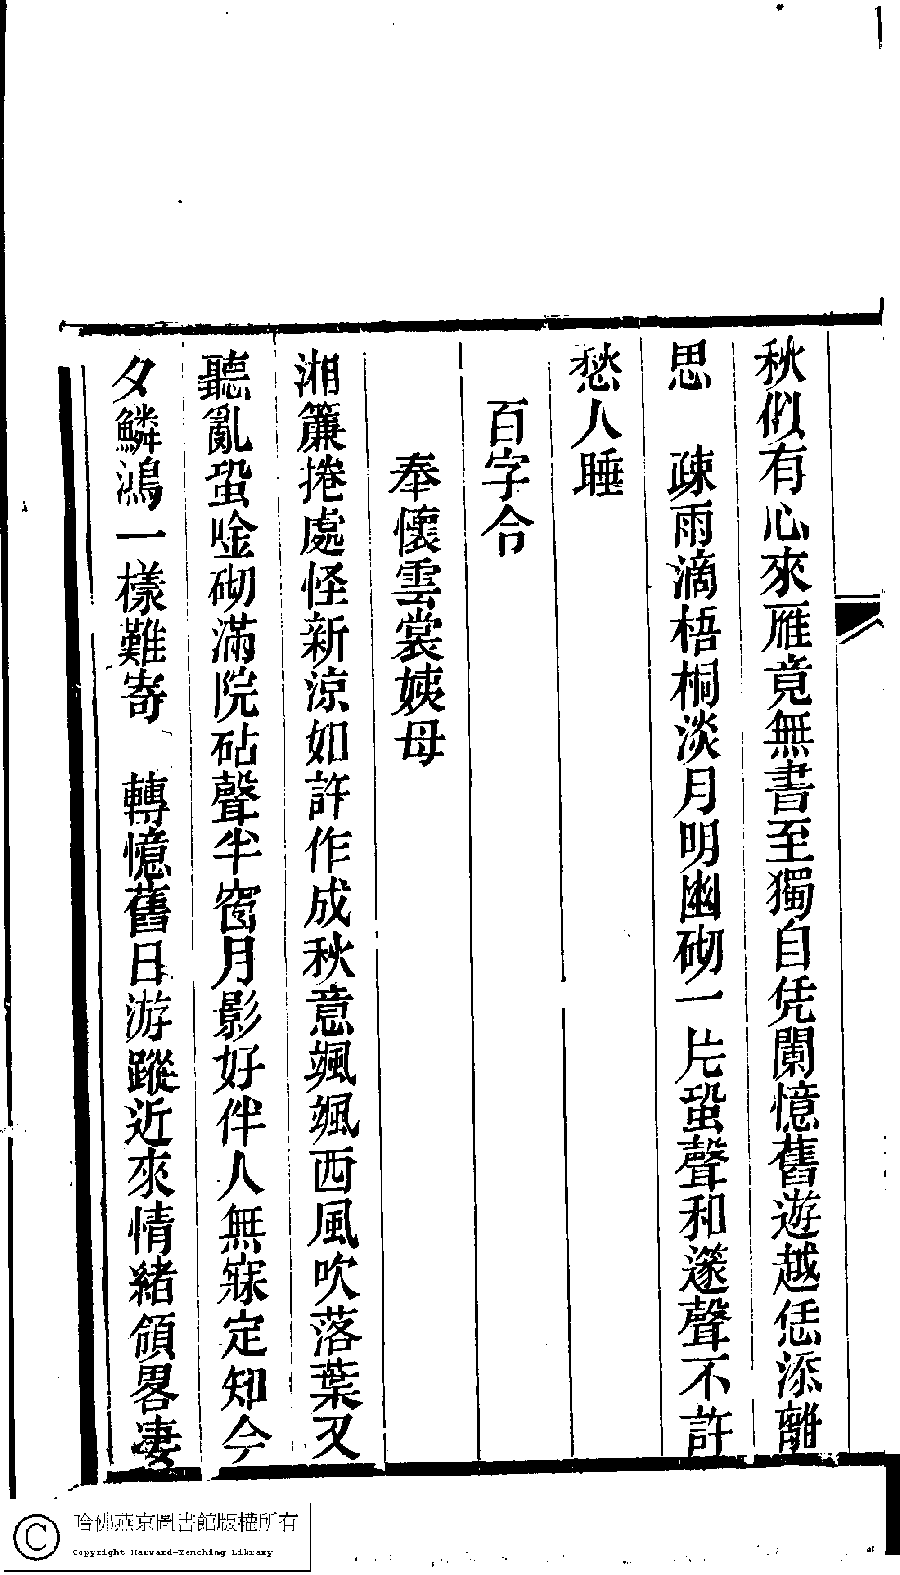 秋似有心來雁竟無書至獨自凭闌憶舊遊越恁添離
思　疎雨滴梧桐淡月明幽砌一片蛩聲和邃聲不許
愁人睡
百字令
奉懷雲裳姨母
湘簾捲處怪新涼如許作成秋意颯颯西風吹落葉又
聽亂蛩唫砌滿院砧聲半窗月影好伴人無寐定知今
夕鱗鴻一樣難寄　轉憶舊日游蹤近來情緒領畧凄
哈佛燕京圖書館版權所有
Copyright Harvard-Yenching Library